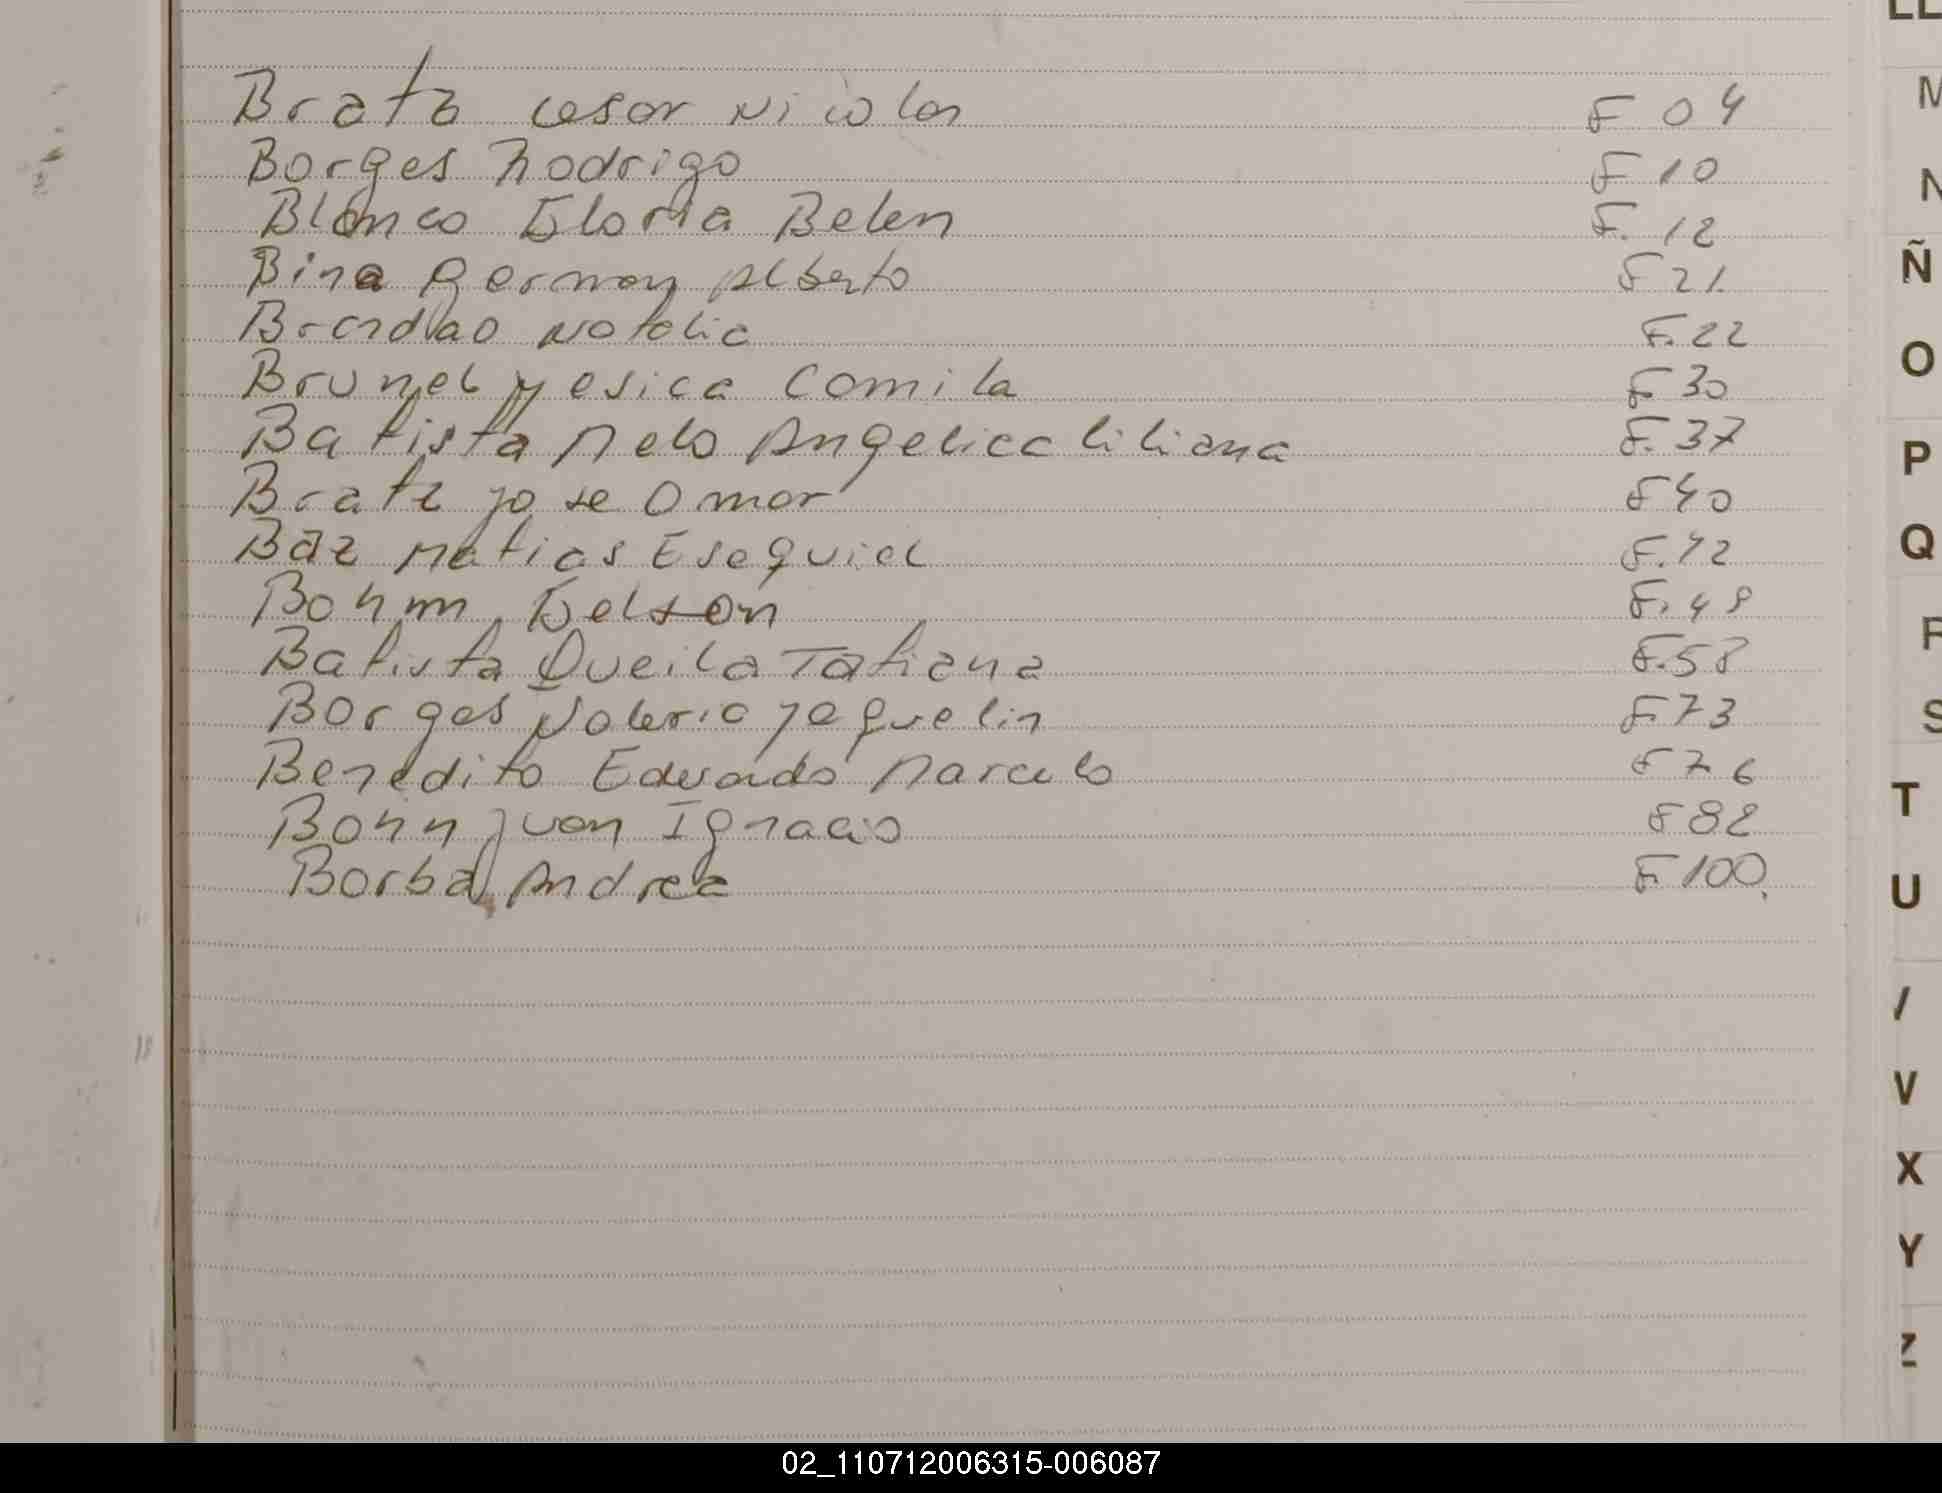 Bratz Cesar Nicolas F 04
Borges Rodrigo F 10
Blanco Gloria Belen F. 12
Bina German Alberto F 21.
Brandao Natalia F. 22
Brunel Yesica Camila F 30
Batista Melo Angelica Liliana F. 37
Bratz Jose Omar F 40
Baz Matias Esequiel F. 42
Bohm Gelson F. 48
Batista Queila Tatiana F. 58
Borges Valeria Jaquelin F 73
Benedito Eduardo Marcelo F 76
Bohn Juan Ignacio F 82
Borba Andrea F 100.
LL
M
N
Ñ
O
P
Q
R
S
T
U
V
X
Y
Z
02_110712006315-006087